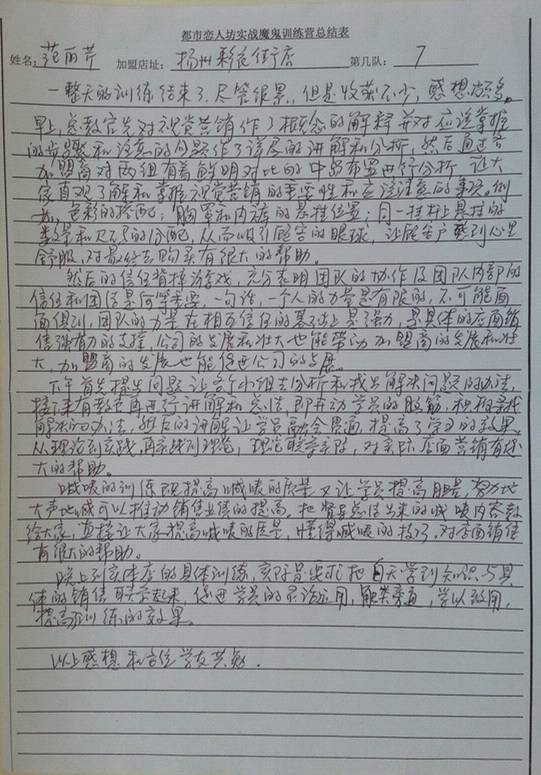 都市恋人坊实战魔鬼训练营总结表
姓名: 范丽芹 加盟店址: 扬州彩衣街店 第几队: 7
一整天的训练结束了,尽管很累,但是收获不少,感想
早上,总教官先对视觉营销作了概念的解释并对应该掌握
的步骤和注意的问题作了详尽的讲解和分析,然后通过
加盟商对两组有着鲜明对比的中岛布置进行分析,让大
家直观了解和掌握视觉营销的重要性和应该注意的事项,例
如,色彩的搭配,胸罩和内裤的悬挂位置;同一挂杆上悬挂的
数量和尺寸的分配,从而吸引顾客的眼球,让顾客感到心里
舒服,对最终去购买有很大的帮助。
然后的信任背摔游戏,充分表明团队的协作及团队内部的
信任和团结是何等重要,一句话,一个人的力量是有限的,不可能面
面俱到,团队的力量在相互信任的基础上是强力,是具体的店面销
售强有力的支撑,公司的发展和壮大也能带动加盟商的发展和壮
大,加盟商的发展也能促进公司的发展。
下午首先提出问题,让每个小组去分析和找出解决问题的办法,
接下来有教官再进行讲解和总结,即开动学员的脑筋,积极寻找
解决的办法,然后的讲解让学员融会贯通,提高了学习的效果。
从理论到实践,再实践到理论,理论联系实际,对实际店面营销有很
大的帮助。
喊唛的训练既提高喊唛的质量又让学员提高胆量,努力地
大声地喊可以推动销售业绩的提高,把督导总结出来的喊唛内容教
给大家,直接让大家提高喊唛的质量,懂得喊唛的技巧,对店面销售
有很大的帮助。
晚上到店体店的具体训练,实际是要求把白天学到知识与具
体的销售联系起来,促进学员的灵活运用,触类旁通,学以致用,
提高了训练的效果。
以上感想和各位学友共勉.